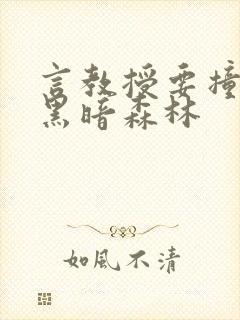 言教授要撞
黑暗森林
如風不清